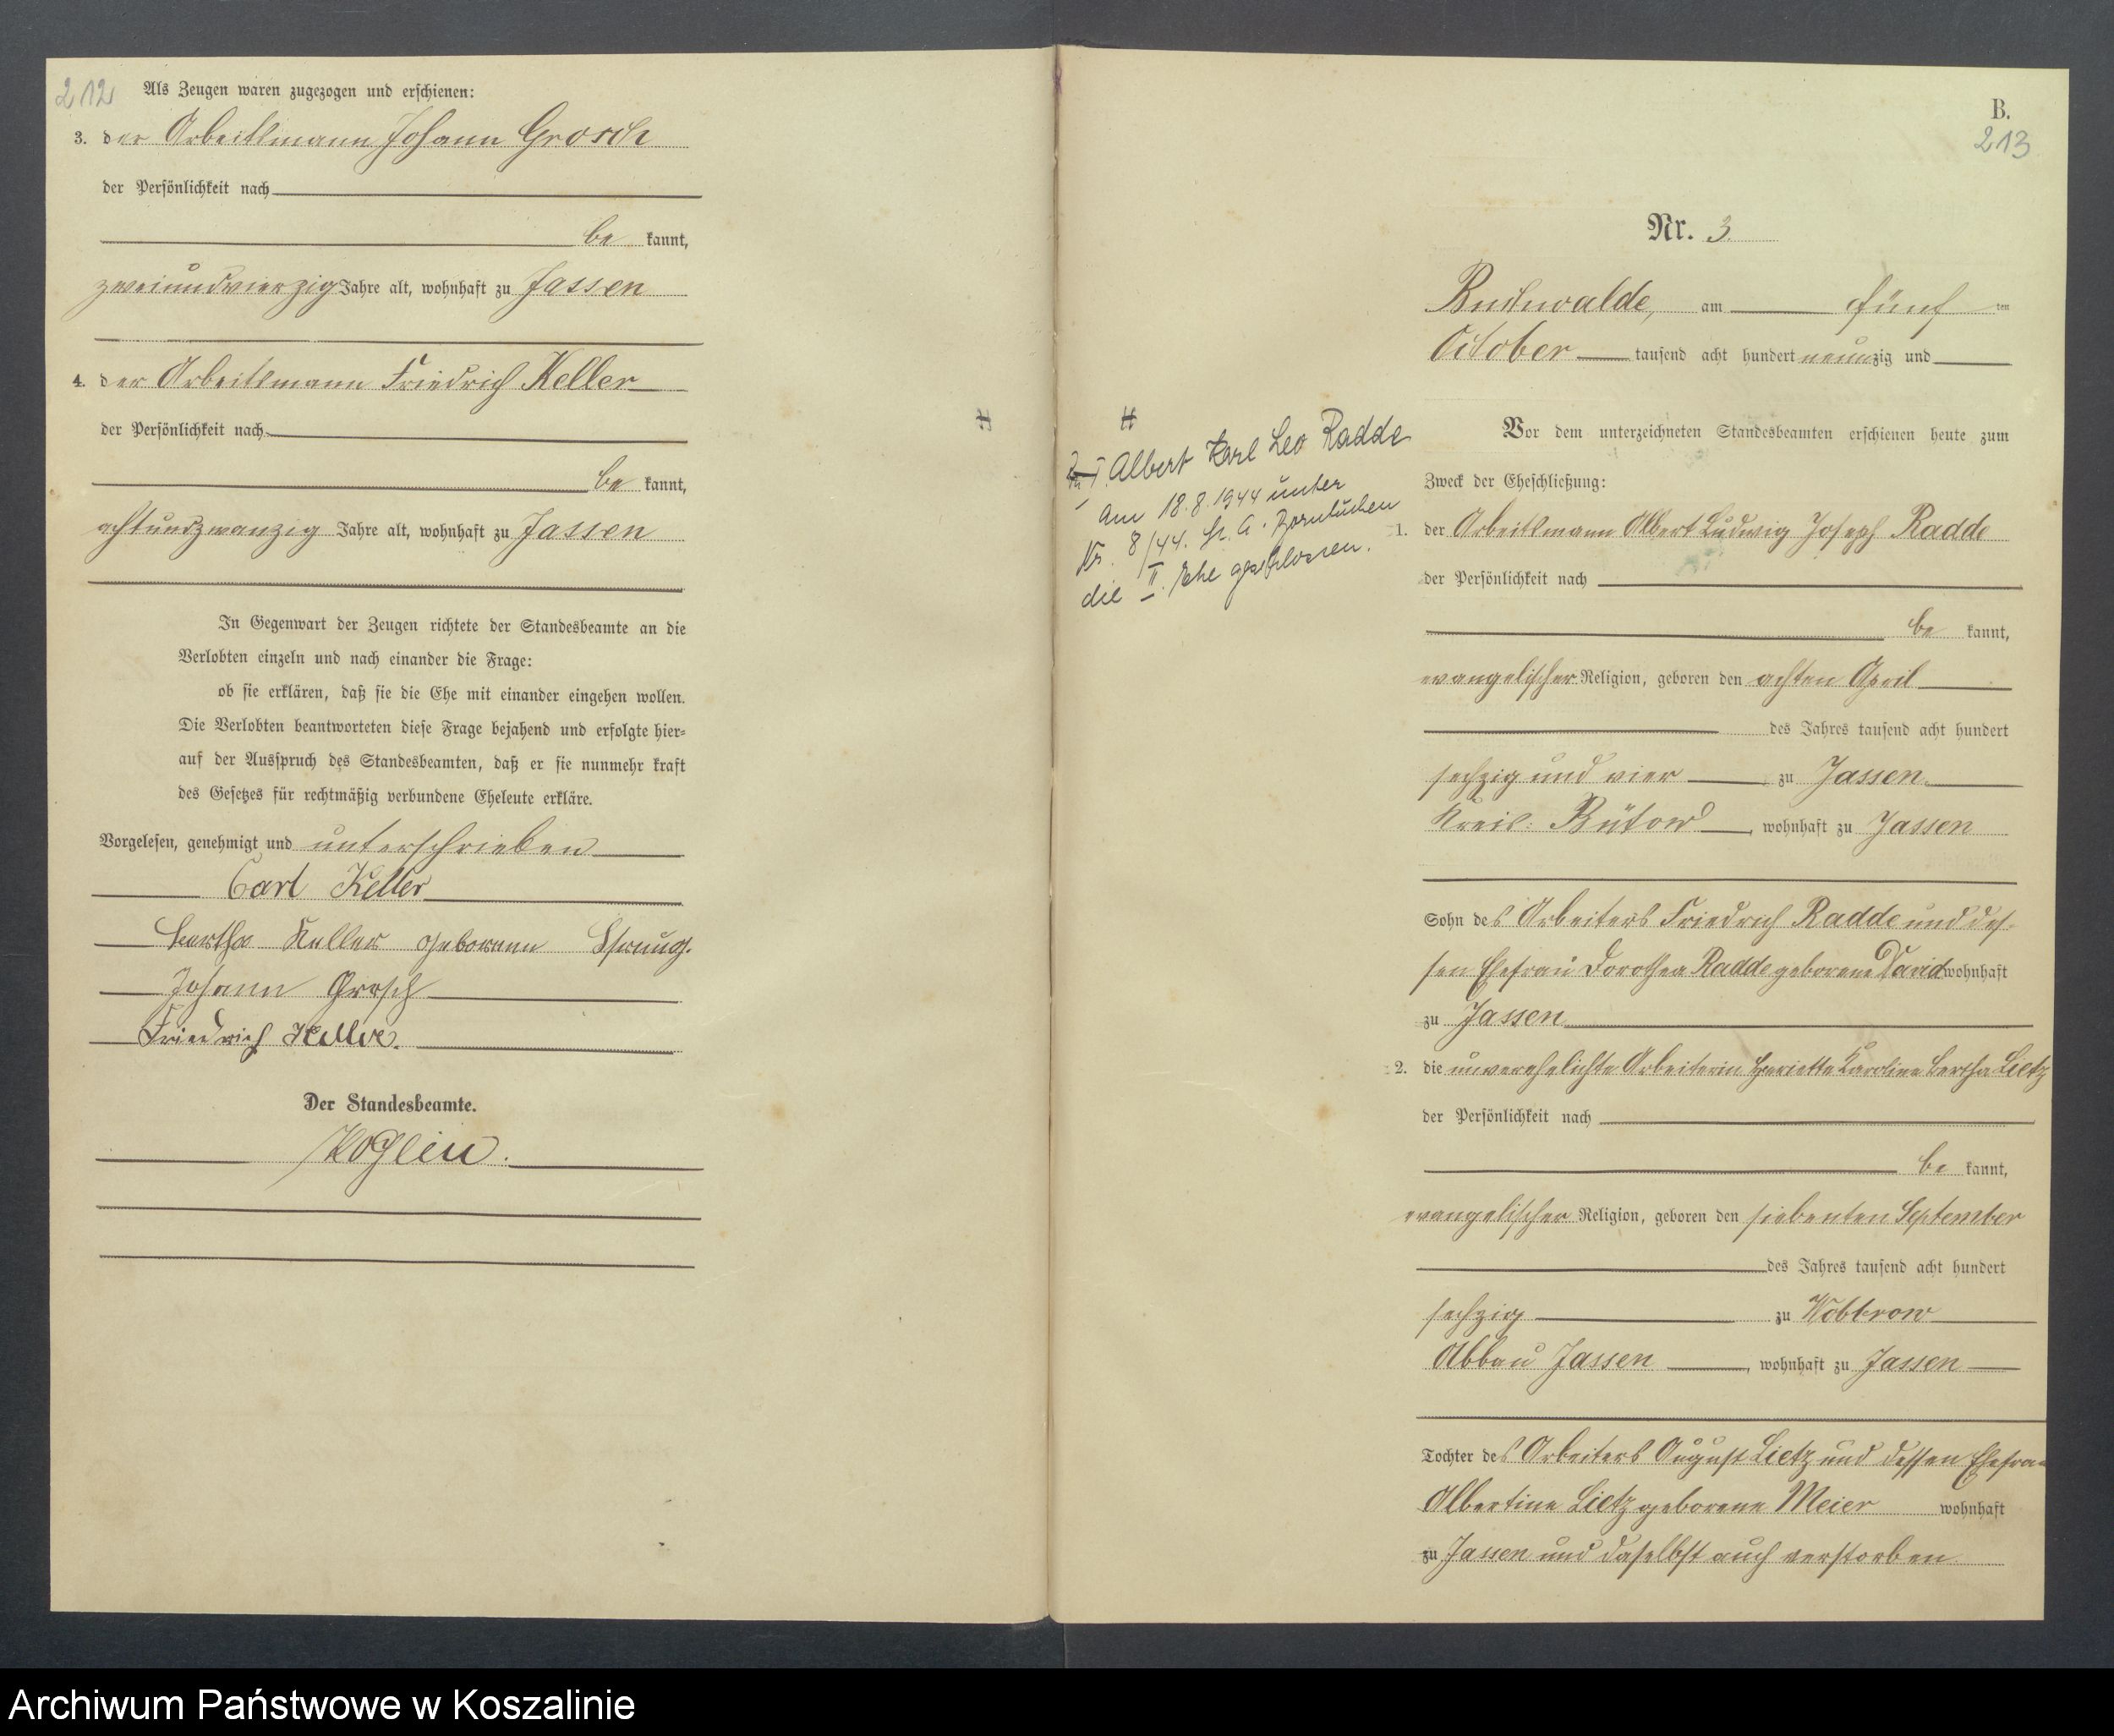 212
Als Zeugen waren zugezogen und erschienen:
3. der Arbeitsmann Johann Grosch
der Persönlichkeit nach
be kannt,
zweiundvierzig Jahre alt, wohnhaft zu Jassen
4. der Arbeitsmann Friedrich Keller
der Persönlichkeit nach
be kannt,
achtundzwanzig Jahre alt, wohnhaft zu Jassen
In Gegenwart der Zeugen richtete der Standesbeamte an die
Verlobten einzeln und nach einander die Frage:
ob sie erklären, daß sie die Ehe mit einander eingehen wollen.
Die Verlobten beantworteten diese Frage bejahend und erfolgte hier-
auf der Ausspruch des Standesbeamten, daß er sie nunmehr kraft
des Gesetzes für rechtmäßig verbundene Eheleute erkläre.
Vorgelesen, genehmigt und unterschrieben
Carl Keller
Bertha Keller geborene
Johann Grosch
Friedrich Keller.
Der Standesbeamte.
B.
213
Nr. 3.
Buchwalde, am fünf ten
October tausend acht hundert neunzig und
Vor dem unterzeichneten Standesbeamten erschienen heute zum
Zweck der Eheschließung:
1. der Arbeitsmann Albert Ludwig Joseph Radde
der Persönlichkeit nach
be kannt,
evangelischer Religion, geboren den achten April
des Jahres tausend acht hundert
sechzig und vier zu Jassen
Kreis: Bütow, wohnhaft zu Jassen
Sohn des Arbeiters Friedrich Radde und des-
sen Ehefrau Dorothea Radde geborene David wohnhaft
zu Jassen
2. die unverehelichte Arbeiterin Henriette Karoline Bertha Lietz
der Persönlichkeit nach
be kannt,
evangelischer Religion, geboren den siebenten September
des Jahres tausend acht hundert
sechzig zu Wobbrow
Abbau Jassen, wohnhaft zu Jassen
Tochter des Arbeiters August Lietz und dessen Ehefrau
Albertine Lietz geborene Meier wohnhaft
zu Jassen und daselbst auch verstorben
Albert Karl Leo Radde
am 18.8.1944 unter
Nr. 8/44. St. A.
die II. Ehe geschlossen.
Archiwum Państwowe w Koszalinie